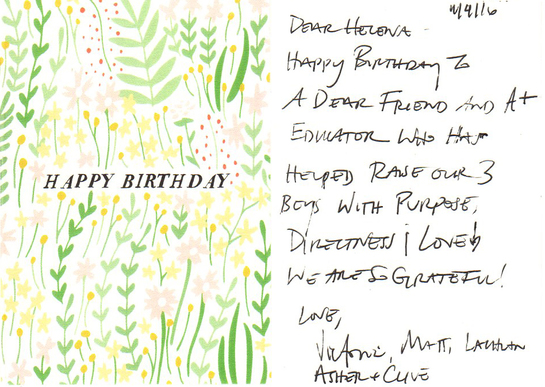 HAPPY BIRTHDAY
11/4/16
DEAR HELENA
HAPPY BIRTHDAY TO
A DEAR FRIEND AND A+
EDUCATOR WHO HAS
HELPED RAISE OUR 3
BOYS WITH PURPOSE,
DIRECTNESS & LOVE!
WE ARE SO GRATEFUL!
LOVE,
MATT, LACHLAN
ASHER + CLIVE